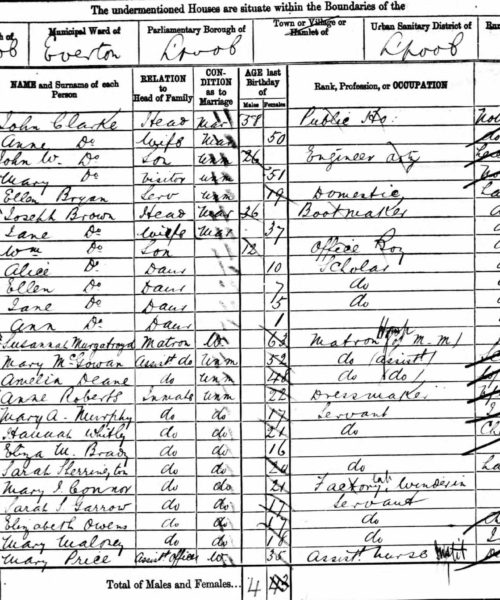 The undermentioned Houses are situate within the Boundaries of the
Municipal Ward of Parliamentary Borough of Town or Village or Hamlet of Urban Sanitary District of
Everton L'pool L'pool
NAME and Surname of each Person RELATION to Head of Family CONDITION as to Marriage AGE last Birthday of Males Females Rank, Profession, or OCCUPATION
John Clarke Head Mar 58 Public Ho:
Anne Do Wife Mar 50
John W. Do Son Unm 26 Engineer
Mary Do Visitor Unm 51
Ellen Bryan Serv Unm 19 Domestic
Joseph Brown Head Mar 36 Bootmaker
Jane Do Wife Mar 37
Wm Do Son 12 Office Boy
Alice Do Daur 10 Scholar
Ellen Do Daur 7 do
Jane Do Daur 5 do
Ann Do Daur 1
Susannah Murgatroyd Matron W 62 Matron
Mary McGowan Assist do Unm 52 do (assist)
Amelia Deane do Unm 48 do (do)
Anne Roberts Inmate Unm 22 Dressmaker
Mary A. Murphy do do 17 Servant
Hannah Whitley do do 21 do
Eliza M. Brady do do 16
Sarah Sherrington do do 20 do
Mary J Connor do do 21 Factory
Sarah J. Garrow do do 17 Servant
Elizabeth Owens do do 17 do
Mary Maloney do do 18 do
Mary Price Assist. Officer W 35 Assist. Nurse
Total of Males and Females... 4